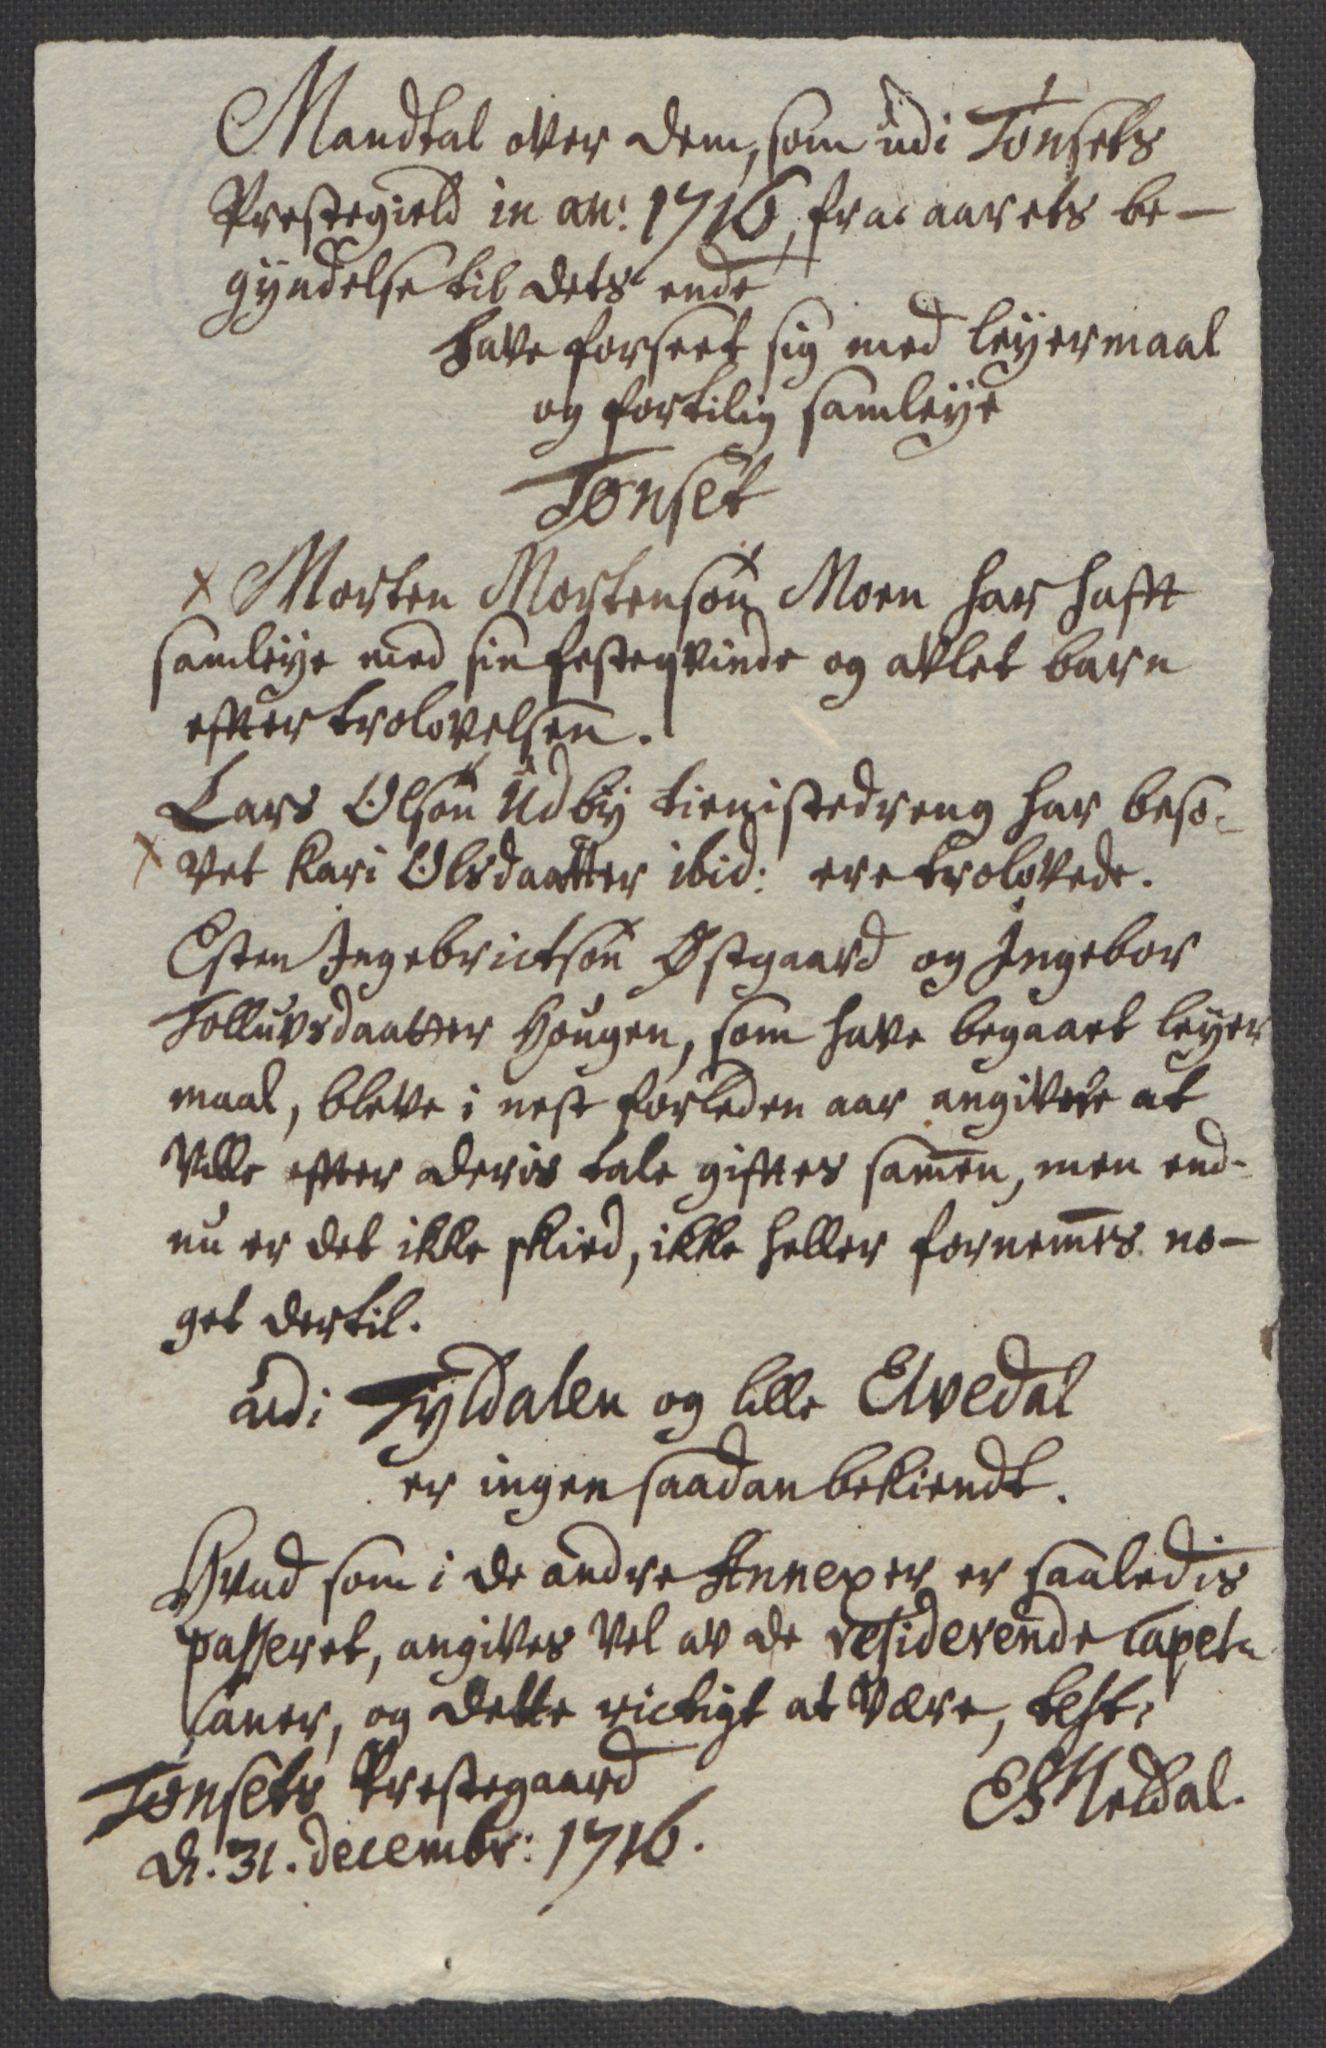 Mandtal over dem, som udi Tønsets
Prestegield in an: 1716, fra aarets be-
gyndelse til dets ende
have forseet sig med leyermaal
og fortilig samleye
Tønset
x Morten Mortensøn Moen har hafft
samleye med sin festeqvinde og avlet barn
effter trolovelsen.
Lars Olsøn Udby tienistedreng har beso-
x vet Kari Olsdaatter ibid: ere trolovede.
Esten Ingebrictsøn Østgaard og Ingebor
Tolluvsdaatter Hougen, som have begaaet leyer
maal, bleve i nest forleden aar angivne at
ville effter deris tale gifftes samen, men end-
nu er det ikke skied, ikke heller fornemes no-
get dertil.
udi Tyldalen og lille Elvedal
er ingen saadan bekiendt.
Hvad som i de andre Annexer er saaledis
passeret, angives vel av de residerende Capel-
laner, og dette rictigt at være, test:
Tønsets Prestegaard
d. 31. decembr: 1716.
ES Meldal.